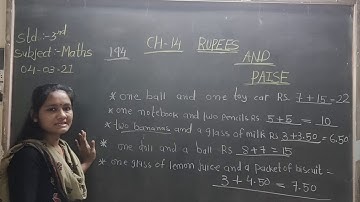 Std :- 3rd
Subject :- Maths
04-03-21
194
CH-14 RUPEES
AND
PAISE
* one ball and one toy car Rs. 7+15=22
* one notebook and two pencils Rs. 5+5 = 10
* two bananas and a glass of milk Rs 3+3.50 = 6.50
* one doll and a ball Rs. 8+7=15
* one glass of lemon juice and a packet of biscuit =
3+4.50 = 7.50